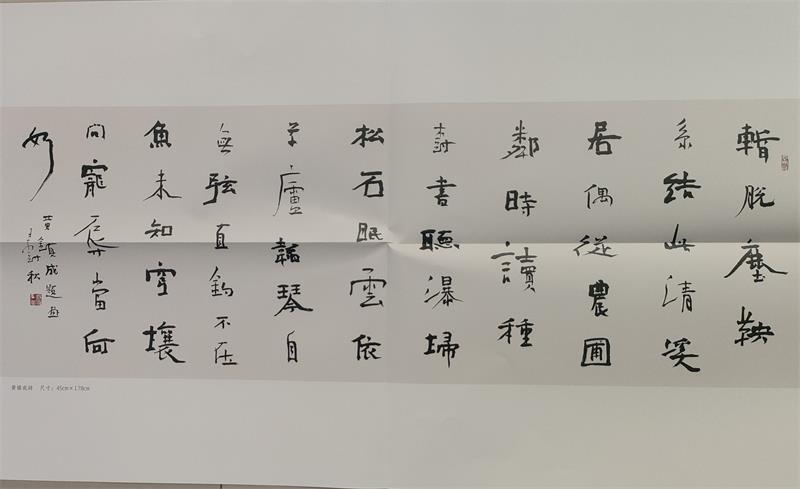 暫脱塵鞅
系結此清溪
居偶從農圃
鄰時讀種
樹書聽瀑掃
松石眠雲依
草廬琴自
無弦直鈎不在
魚未知穹壤
間寵辱當何
如
黄鎮成題画
秋
黄镇成詩 尺寸：45cm×178cm